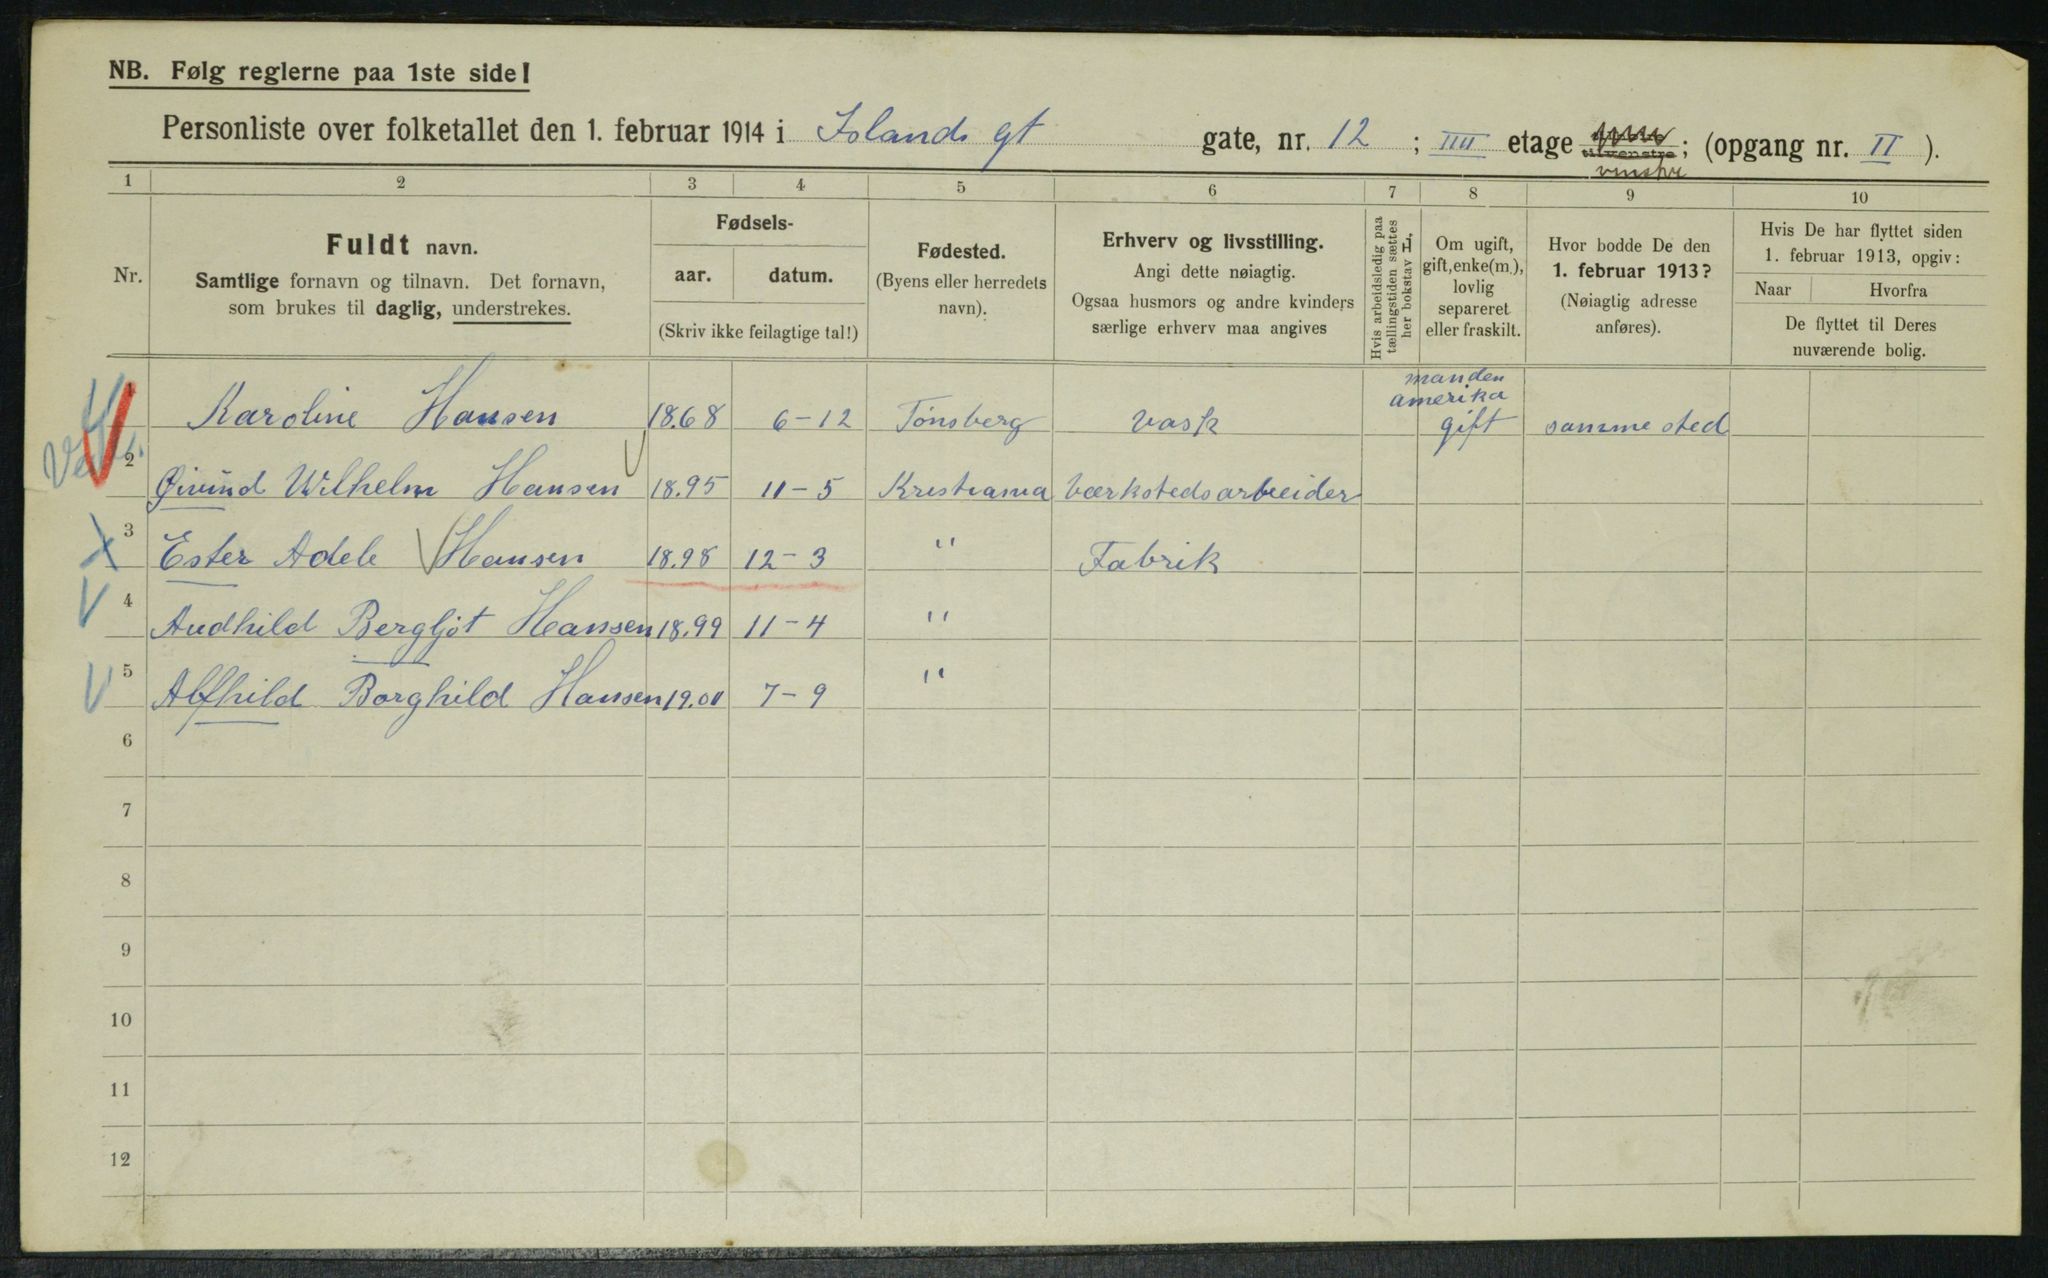 NB. Følg reglerne paa 1ste side!
Personliste over folketallet den 1. februar 1914 i Islands gt gate, nr. 12 ; IIII etage tilvenstre venstre ; (opgang nr. II ).
1 2 3 4 5 6 7 8 9 10
Nr.
Fuldt navn.
Samtlige fornavn og tilnavn. Det fornavn,
som brukes til daglig, understrekes.
Fødsels-
aar. datum.
(Skriv ikke feilagtige tal!)
Fødested.
(Byens eller herredets
navn).
Erhverv og livsstilling.
Angi dette nøiagtig.
Ogsaa husmors og andre kvinders
særlige erhverv maa angives
Hvis arbeidsledig paa
tællingstiden sættes
her bokstav L,
Om ugift,
gift, enke(m.),
lovlig
separeret
eller fraskilt.
Hvor bodde De den
1. februar 1913?
(Nøiagtig adresse
anføres).
Hvis De har flyttet siden
1. februar 1913, opgiv:
Naar Hvorfra
De flyttet til Deres
nuværende bolig.
manden
amerika
1 Karoline Hansen 18.68 6-12 Tønsberg Vask gift samme sted
2 Øivind Wilhelm Hansen 18.95 11-5 Kristiania Værkstedsarbeider
3 Ester Adele Hansen 18.98 12-3 " Fabrik
4 Audhild Bergljót Hansen 18.99 11-4 "
5 Alfhild Borghild Hansen 19.01 7-9 "
6
7
8
9
10
11
12